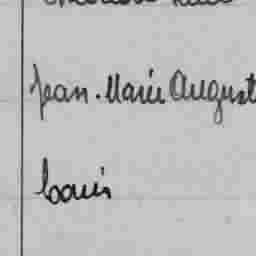 Jean-Marie August
Louis